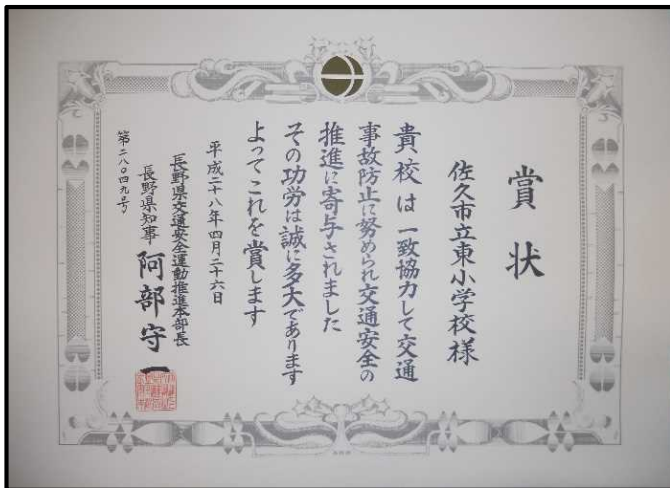 賞状
佐久市立東小学校様
貴校は一致協力して交通
事故防止に努められ交通安全の
推進に寄与されました
その功労は誠に多大であります
よってこれを賞します
平成二十八年四月二十六日
長野県交通安全運動推進本部長
長野県知事 阿部守一
第二八〇四九号